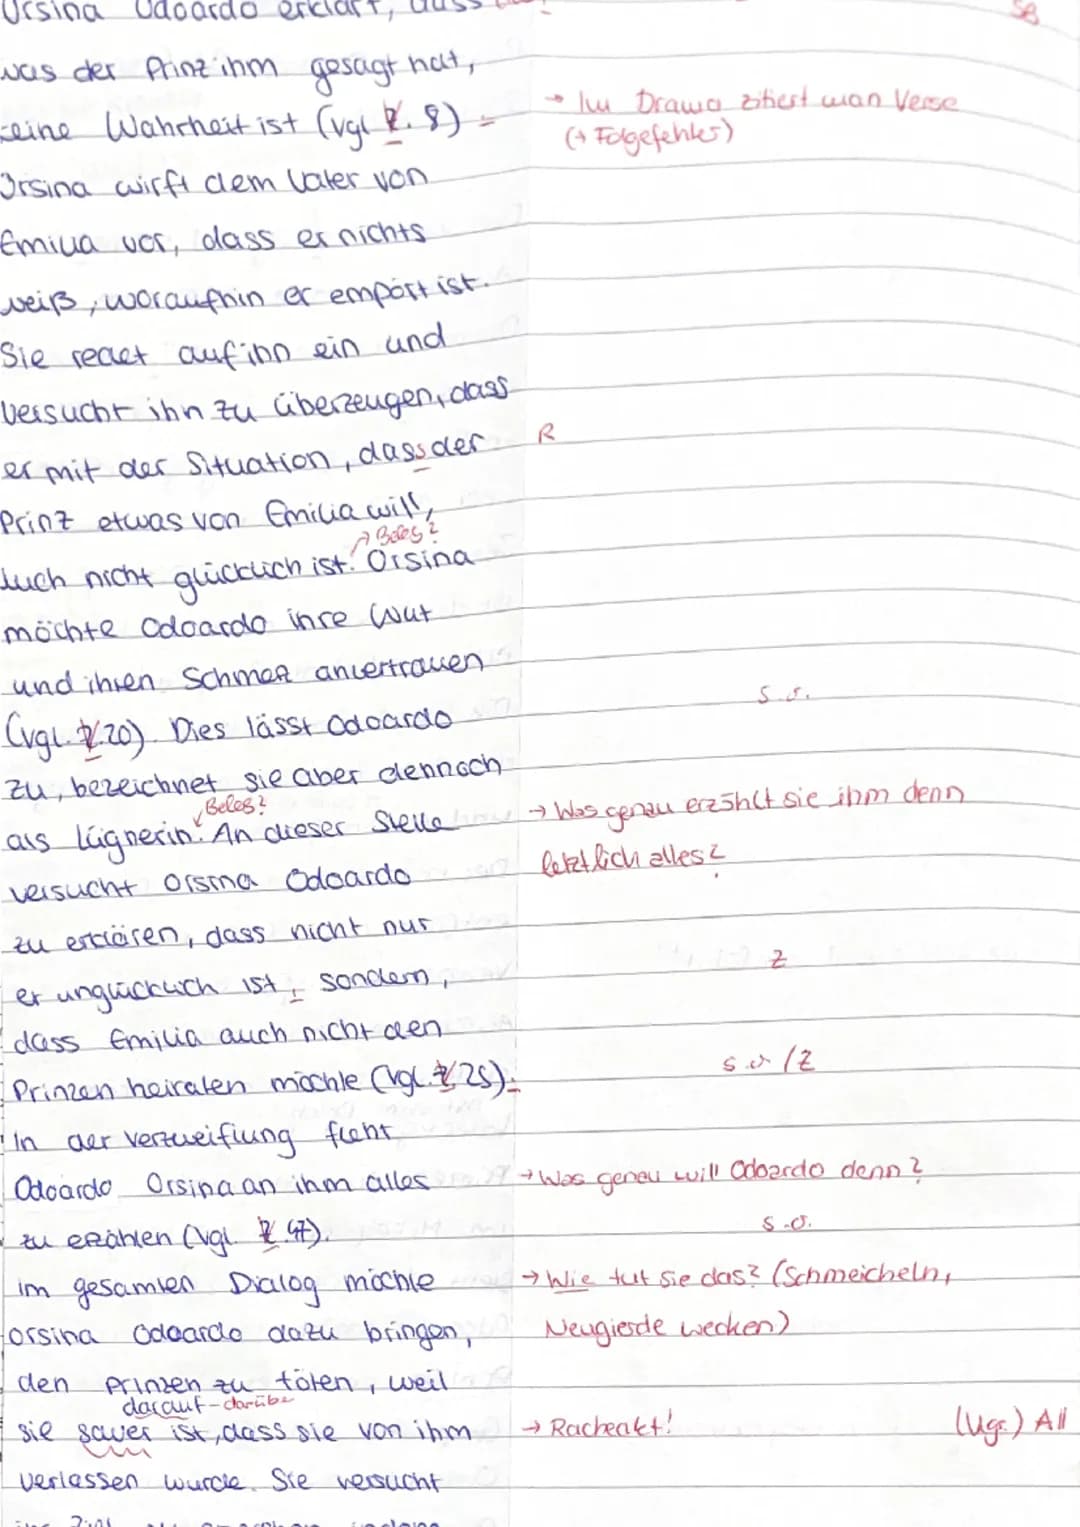 Orsina Odoardo erklärt, dass
SB
was der Prinz ihm gesagt hat,
keine Wahrheit ist (vgl Z. 8)
→ Im Drama zitiert man Verse
(+ Folgefehler)
Orsina wirft dem Vater von
Emilia vor, dass er nichts
weiß, woraufhin er empört ist.
Sie redet auf ihn ein und
versucht ihn zu überzeugen, dass
er mit der Situation, dass der R
Prinz etwas von Emilia will,
↗ Beleg?
auch nicht glücklich ist. Orsina
möchte Odoardo ihre Wut
und ihren Schmerz anvertrauen
(vgl. Z. 20). Dies lässt Odoardo s.o.
zu, bezeichnet sie aber dennoch
Beleg?
als Lügnerin. An dieser Stelle
→ Was genau erzählt sie ihm denn
letztlich alles?
versucht Orsina Odoardo
zu erklären, dass nicht nur
er unglücklich ist, sondern, Z
dass Emilia auch nicht den
Prinzen heiraten möchte (vgl. Z 25). s.o/Z
In der Verzweiflung fleht
Odoardo Orsina an ihm alles → Was genau will Odoardo denn?
zu erzählen (vgl. Z. 47). s.o.
im gesamten Dialog möchte → Wie tut sie das? (Schmeicheln,
orsina Odoardo dazu bringen, Neugierde wecken)
den Prinzen zu töten, weil
darauf-darüber
sie sauer ist, dass sie von ihm → Racheakt! (Ugs.) All
verlassen wurde. Sie versucht
ihr Ziel